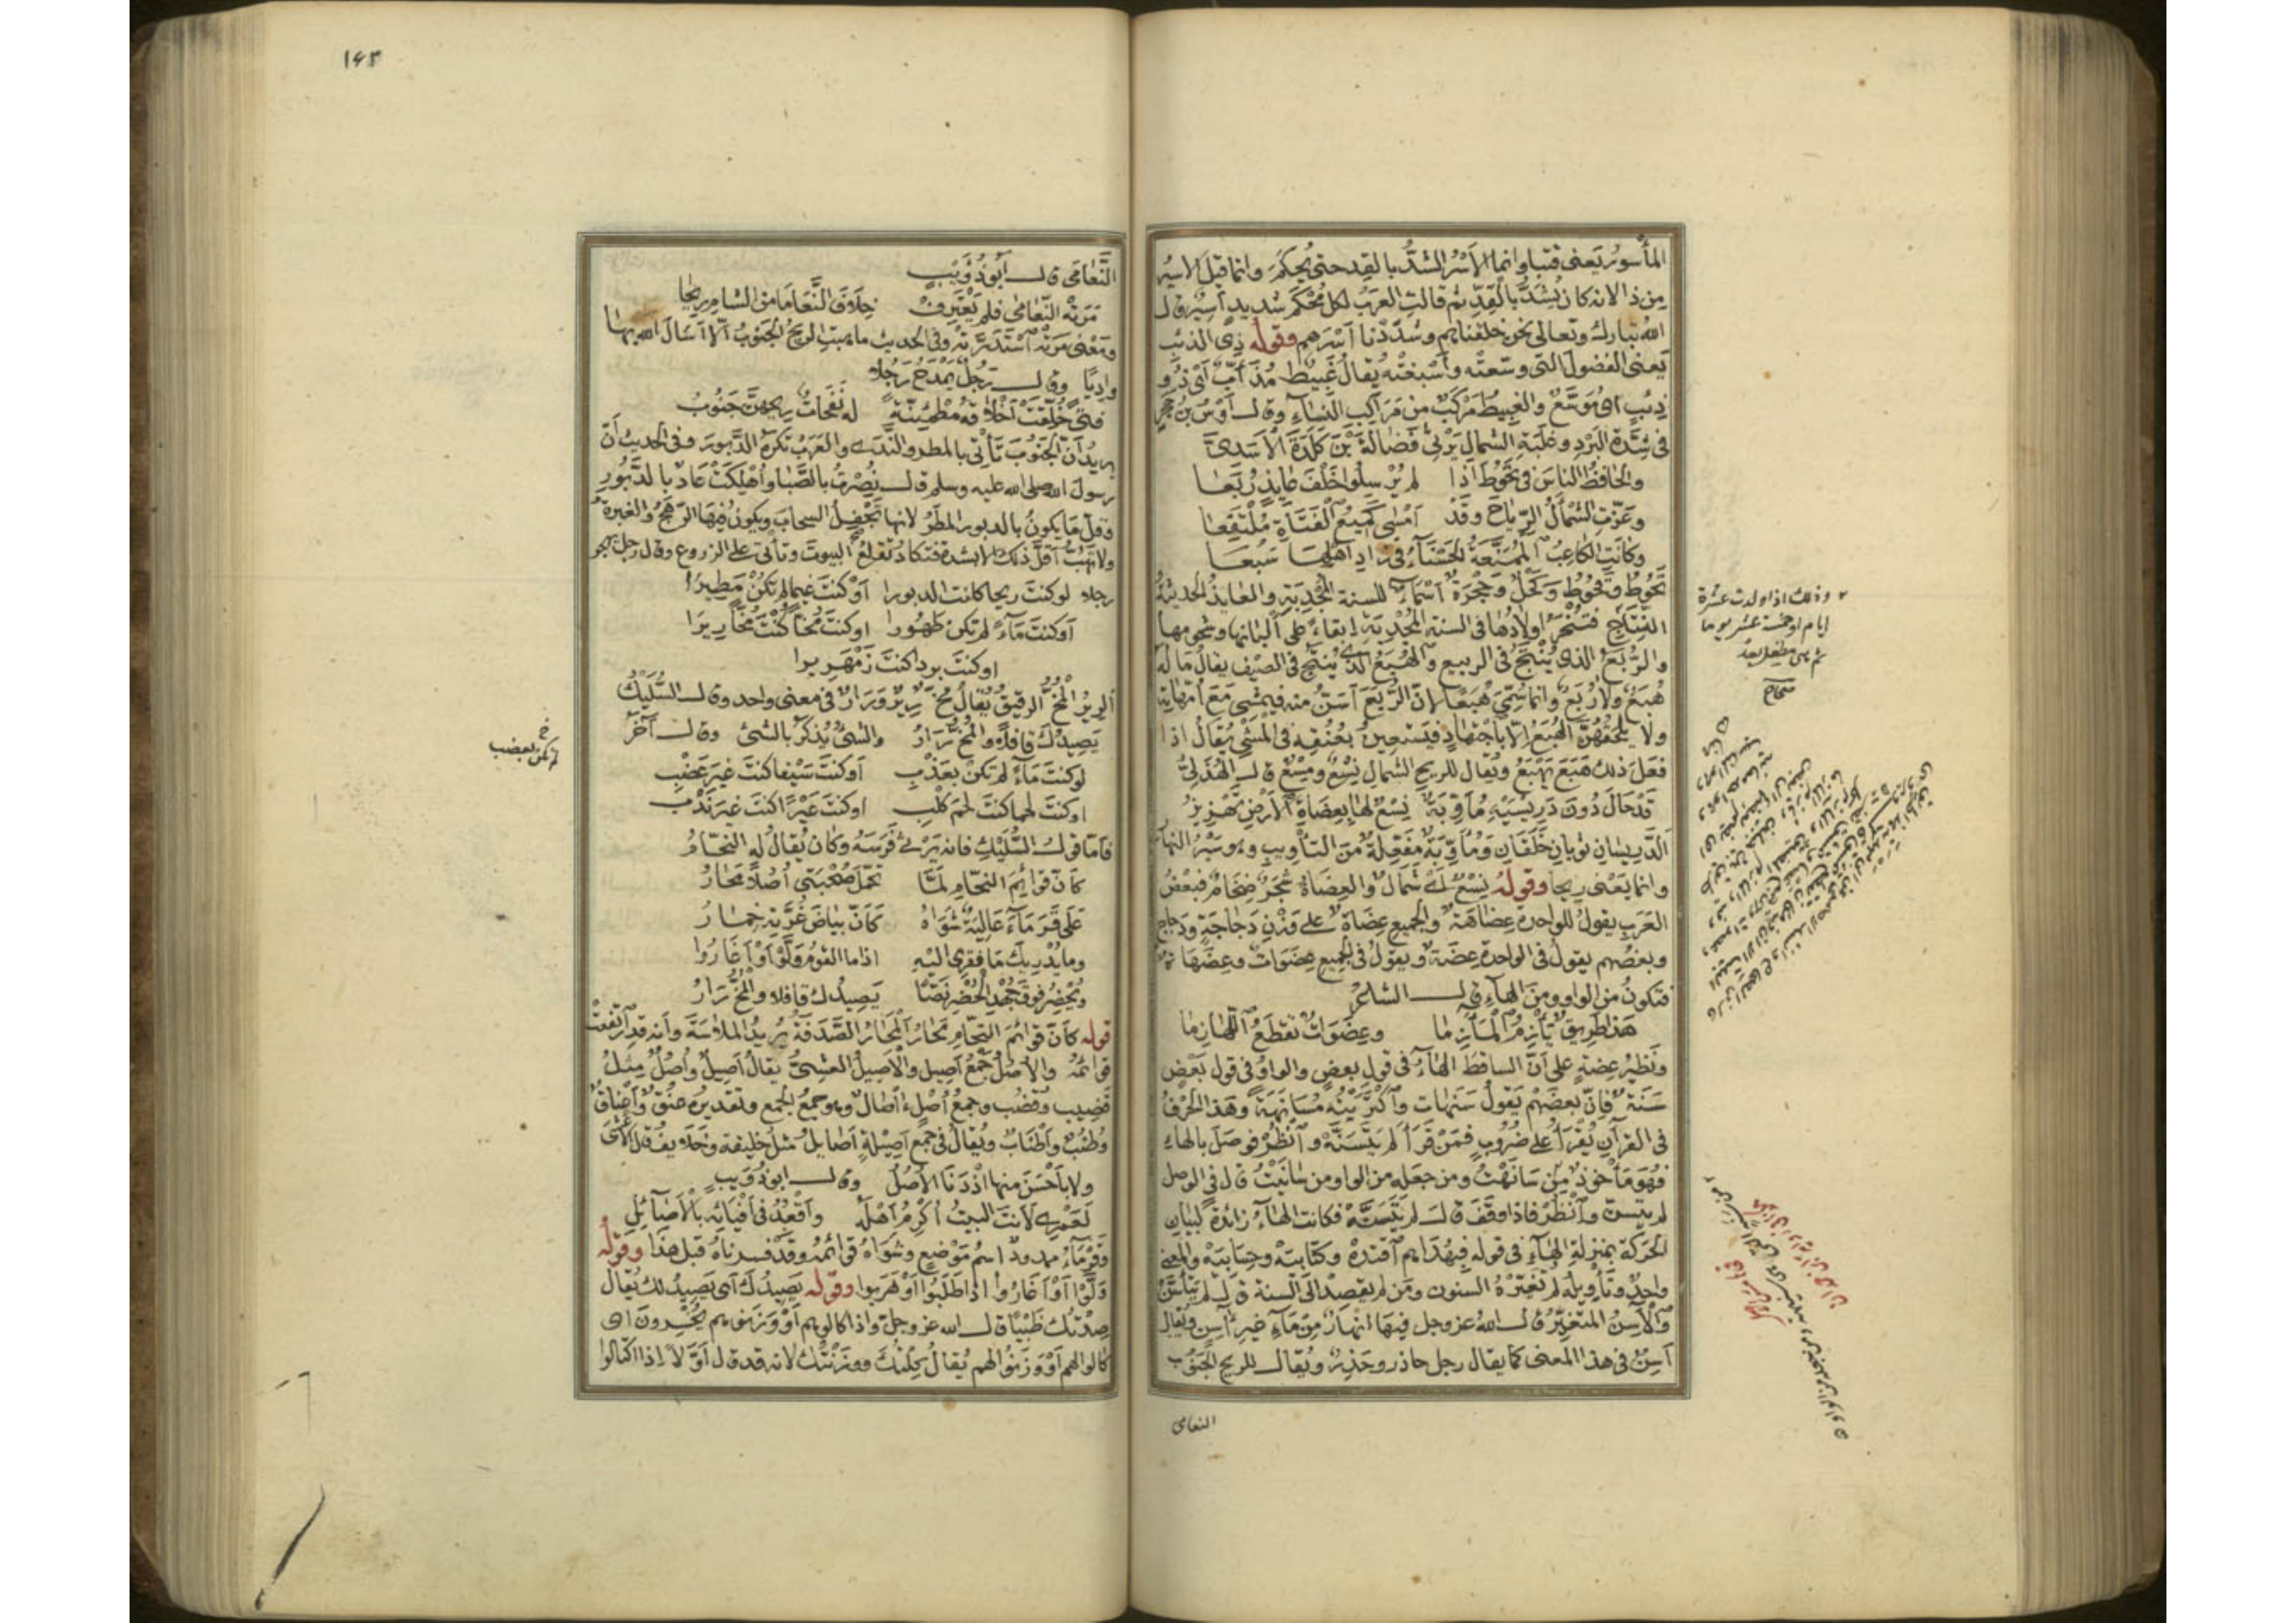 المأْسورُ يَعنى قَتَبا وانما الأَسْرُ الشدُّ بالقِدِ حتى يُحكَمَ وانما قيل الاسيرُ
مِن ذا لانه كان يُشَدُّ بالقِدِّ ثم قالتِ العربُ لكل مُحْكَم شديدٍ اسيرٌ قال
اللهُ تبارك وتعالى نحن خلقناهم وشدَدْنا أسْرَهم وقوله ذِى الذئب
يَعنى الفضولَ التى وسّعتْه وأسْبغتْه يُقالُ غَبيطٌ مُذَأّبٌ اى ذُو
ذِئبٍ اى مُوَسَّعٌ والغبيطُ مَرْكبٌ من مَرَاكبِ النساءِ وقال أوْسُ بن حَجَرٍ
فى شِدَّة البَرْدِ وغَلَبَةِ الشمالِ يَرْثِى فَضَالةَ بْنَ كَلَدَةَ الأَسَدىَّ
والحافظُ الناسَ فى تَحُوطَ اذا لم يُرْسِلُوا خَلْفَ عايذٍ رُبَعا
وعَزّتِ الشَّمْأَلُ الرِّياحَ وقَدْ أمْسَى كَمِيعُ الفَتَاةِ مُلْتَفِعا
وكانتِ الكاعِبُ المُمَنَّعَةُ الحَسْنَاءُ فى زادِ أهْلِها سَبُعَا
تَحُوطُ وتَحِوُطُ وكَحْلٌ وحَجْرَةٌ أسْمَاءٌ للسنة المُجْدِبَةِ والعايذُ الحديثةُ
النِّتاجِ فتُنْحَرُ اولادُها فى السنة المُجْدِبَةِ إبقاءً على ألبانِها وشحومِها
والرُّبَعُ الذى يُنْتَجُ فى الربيع والهُبَعُ الذى يُنْتَجُ فى الصيف يقالُ ما له
هُبَعٌ ولا رُبَعٌ وانما سُمِّىَ هُبَعًا لانّ الرُّبَعَ أسَنُّ منه فيمشى مَعَ أُمّهاته
ولا يَلْحَقُهنّ الهُبَعُ إلّا باجْتهادٍ فيَستعينُ بعُنُقِه فى المَشْىِ يُقالُ اذا
فعَلَ ذلك هَبَعَ يَهْبَعُ ويُقال للريح الشمال نِسْعٌ ومِسْعٌ قال الهُذَلىُّ
قَدْحَالَ دُونَ دَرِيسَيْهِ مُأوِّبَةٌ نِسْعٌ لها بِعِضَاهِ الأرْضِ تَهْزِيزُ
الدَّرِيسَانِ ثوبانِ خَلَقَانِ ومُأوِّبَةٌ مُفَعِّلةٌ مِنَ التأْويبِ وهو سَيْرُ النهار
وانما يَعْنى رِيحا وقولهُ نِسْعٌ لكَ شمالٌ والعِضَاهُ شجَرٌ ضِخَامٌ فبعْضُ
العَرَبِ يقولُ للواحدةِ عِضَاهَةٌ والجميعِ عِضَاهٌ على وَزْنِ دَجاجَةٍ ودَجاجٍ
وبعضُهم يقول فى الواحدة عِضَةٌ ويقولُ فى الجميع عِضَوَاتٌ وعِضَهَات
فتكونُ من الواو ومنَ الهاءِ قال الشاعرُ
هذا طَرِيقٌ يَأْزِمُ المَآزِما وعِضَوَاتٌ تَقطَعُ اللَّهازِما
ونَظِيرُ عِضةٍ على أنَّ الساقطَ الهاءُ فى قول بعضٍ والواوُ فى قول بَعْضٍ
سَنَةٌ فإنّ بعضَهُم يَقولُ سَنَهات وأكْرَيْتُه مُسَانَهَةً وهَذا الحَرْفُ
فى القرآن يُقْرَأُ على ضُروبٍ فمَنْ قرَأَ لم يَتَسَنَّهْ وانْظُرْ فوصَلَ بالهاء
فهُو مَأخوذٌ مِنْ سَانَهْتُ ومن جعَله من الواو من سَانَيْتُ قال فى الوصل
لم يتَسنَّ وانْظُرْ فاذا وقَفَ قال لم يَتَسَنَّهْ فكانت الهاءُ زائدةً لبَيَان
الحَرَكة بمنزلة الهاءِ فى قوله فبِهُدَاهُم اقْتدِهْ وكتابيَهْ وحِسَابِيَهْ والمعنى
واحِدٌ وتَأْويلُه لم تُغَيِّرْهُ السنون ومَن لم يقصِدْ الى السنة قال لم يَتأسَّنْ
والآسِنُ المتغيِّرُ قال اللهُ عزوجل فيها انهارٌ مِن مَآءٍ غيرِ آسِنٍ ويُقال
أسِنٌ فى هذا المعنى كما يقال رجل حاذر وحَذِرٌ ويُقال للريح الجَنُوبِ
النعامى
وذلك اذا ولدت عشرة
ايام او خمسة عشر يوما
ثم هى مطفل بعدُ
صحاح
١٤٣
النُّعَامَى قال أبُو ذُؤَيْبٍ
مَرَتْه النُّعامى فلم يَعْتَرِفْ خِلافَ النُّعَامَا مِنَ الشامِ رِيحًا
ومَعْنى مَرَتْه اسْتَدَرَّتْه وفى الحديث ما هبتِ الريحُ الجَنُوبُ الّا أسَالَ اللهُ بها
وادِيًا وقال رَجُلٌ يَمْدَحُ رَجُلا
فتىً خُلِقَتْ أخْلاقُه مُطْمَئِنَّةً له نَفَحَاتٌ رِيحُهنَّ جَنُوبُ
يريدُ أنّ الجَنُوبَ تَأتِى بالمطر والنَّدَى والعَرَبُ تكرَهُ الدَّبُورَ وفى الحديث أنّ
رسولَ الله صلى الله عليه وسلم قال نُصِرْتُ بالصَّبَا وأُهْلِكَتْ عَادٌ بالدَّبُورِ
وقلّ مَا يكونُ بالدبور المطَرُ لانها تُجْفِلُ السحابَ ويكونُ فيها الرَّهَجُ والغبرةُ
ولا تَهُبُّ أقلّ ذلك الا بشدة فتكادُ تقلَعُ البيوتَ وتأتى على الزروع وقال رجل يهجو
رجلا لو كنتَ ريحا كانت الدبورا أوْ كنتَ غيما لم تكُنْ مَطِيرَا
أو كنتَ مَاءً لم تكن طَهُورا اوكنتَ مُخّا كُنْتَ مُخّا رِيرَا
اوكنتَ بردا كنتَ زَمْهَرِيرا
الرِيرُ المُخُّ الرقيقُ يُقالُ مُخٌّ رِيرٌ ورَارٌ فى معنى واحد وقال السُّلَيْكُ
يَصِيدُكَ قافِلًا والمُخُّ رَارُ والشىُّ يُذكَرُ بالشىْ وقال آخَرُ
لوكنتَ مَاءً لم تكنْ بعَذْبِ أوكنتَ سَيْفا كنتَ غيرَ عَضْبِ
اوكنتَ لحما كنتَ لَحمَ كَلْبِ اوكنتَ عَيْرًا كنتَ غيرَ نَدْبِ
فأمّا قولُ السُّلَيْكِ فانه يَرْثى فَرَسَه وكان يُقالُ له النحّامُ
كأنَّ قَوائِمَ النحّامِ لَمّا تَحَمَّلَ صُحْبَتى أُصُلًا مَحَارُ
عَلَى قَرَمَاءَ عَالِيَةٌ شَوَاهُ كأَنّ بَيَاضَ غُرَّتِهِ خِمَارُ
وما يُدْرِيكَ مَا فَقْرِى الَيْهِ اذا ما القومُ وَلَّوْا أوْ أغَارُوا
ويُحْضِرُ فوقَ جُهْدِ الحُضْرِ نَصًّا يَصِيدُك قافلا والمُخُّ رَارُ
قوله كأن قوائمَ النحّامِ مَحَارُ المَحَارُ الصَّدَفَةُ يُرِيدُ الملاسَةَ وأنه قد ارتفعتْ
قوائمُهُ والاُصُلُ جَمْعُ أصِيلٍ والأصِيلُ العشِىُّ يقالُ أصِيلٌ وأُصُلٌ مِثلُ
قضيب وقُضُب وجمعُ أُصُلٍ آصَالٌ وهو جمعُ الجمع وتقديرُه عنُقٌ وأعْنَاقٌ
وطُنُبٌ وأطْنَابٌ ويُقالُ فى جَمْعِ أصِيلةٍ أصايِلُ مثلُ خليفة وخَلَايف قال الأعْشَى
ولا بأحْسَنَ منها اذْدَنَا الأُصُلُ وقال ابوذُؤَيبٍ
لَعَمْرِى لأنتَ البيتُ أُكْرِمُ أهْلَهُ وأقْعُدُ فى أفْيَائِهِ بالأصَائِلِ
وقَرَمَاءُ ممدودٌ اسمُ مَوْضِعٍ وشَوَاهُ قوائمُهُ وقد فسرناهُ قبل هذا وقولُه
وَلَّوْا أوْ أغَارُوا اذا طلَبُوا أوْ هَرَبوا وقوله يَصِيدُك أى يَصِيدُ لك يُقال
صِدْتُك ظَبْيًا قال الله عزوجل واذا كالوهم أوْ وَزَنوهم يُخْسِرونَ اى
كالوا لهم أوْ وَزَنُوا لهم يُقالُ كِلْتُكَ ووَزَنْتُك لانه قد قال أوّلًا اذا اكتالوا
خ
لم تكن بعضب